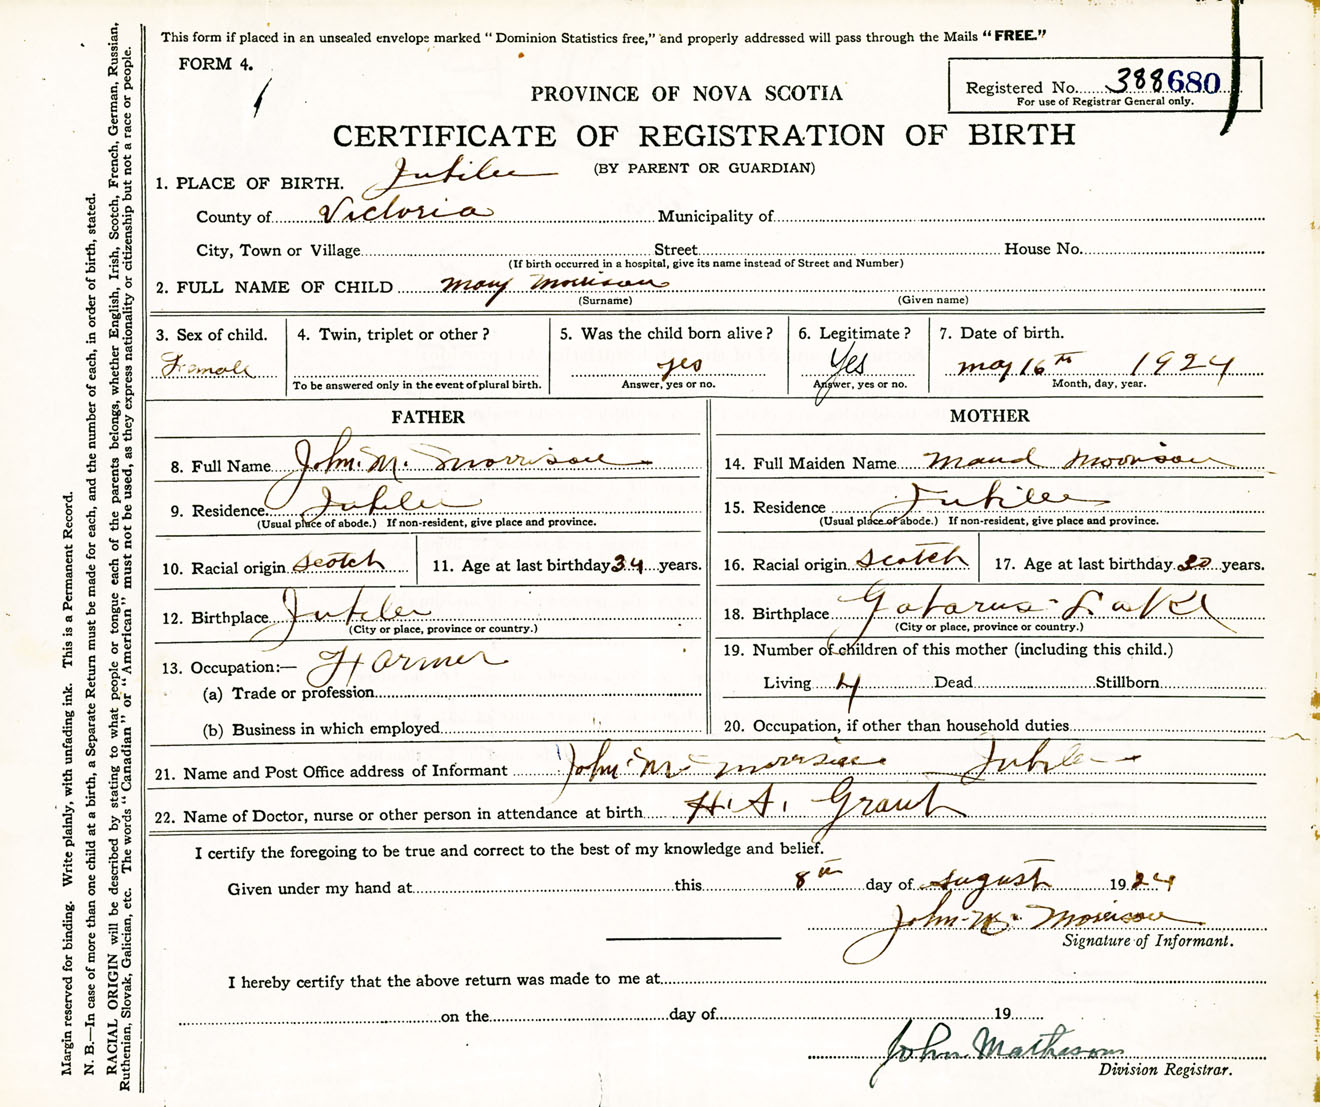 This form if placed in an unsealed envelope marked "Dominion Statistics free," and properly addressed will pass through the Mails "FREE."
FORM 4.
Registered No. 388680
For use of Registrar General only.
PROVINCE OF NOVA SCOTIA
CERTIFICATE OF REGISTRATION OF BIRTH
(BY PARENT OR GUARDIAN)
1. PLACE OF BIRTH. Jubilee
County of Victoria Municipality of
City, Town or Village Street House No.
(If birth occurred in a hospital, give its name instead of Street and Number)
2. FULL NAME OF CHILD Mary Morrison
(Surname) (Given name)
3. Sex of child. 4. Twin, triplet or other? 5. Was the child born alive? 6. Legitimate? 7. Date of birth.
Female yes Yes May 16th 1924
To be answered only in the event of plural birth. Answer, yes or no. Answer, yes or no. Month, day, year.
FATHER
8. Full Name John. M. Morrison
9. Residence. Jubilee
(Usual place of abode.) If non-resident, give place and province.
10. Racial origin Scotch 11. Age at last birthday 34 years.
12. Birthplace Jubilee
(City or place, province or country.)
13. Occupation:— Farmer
(a) Trade or profession
(b) Business in which employed
MOTHER
14. Full Maiden Name Maud Morrison
15. Residence Jubilee
(Usual place of abode.) If non-resident, give place and province.
16. Racial origin Scotch 17. Age at last birthday 30 years.
18. Birthplace Gabarus Lake
(City or place, province or country.)
19. Number of children of this mother (including this child.)
Living 4 Dead Stillborn
20. Occupation, if other than household duties
21. Name and Post Office address of Informant John M. Morrison Jubilee
22. Name of Doctor, nurse or other person in attendance at birth H. A. Grant
I certify the foregoing to be true and correct to the best of my knowledge and belief.
Given under my hand at this 8th day of August 1924
John M. Morrison
Signature of Informant.
I hereby certify that the above return was made to me at
on the day of 19
John Matheson
Division Registrar.
Margin reserved for binding. Write plainly, with unfading ink. This is a Permanent Record.
N. B.—In case of more than one child at a birth, a Separate Return must be made for each, and the number of each, in order of birth, stated.
RACIAL ORIGIN will be described by stating to what people or tongue each of the parents belongs, whether English, Irish, Scotch, French, German, Russian,
Ruthenian, Slovak, Galician, etc. The words "Canadian" or "American" must not be used, as they express nationality or citizenship but not a race or people.